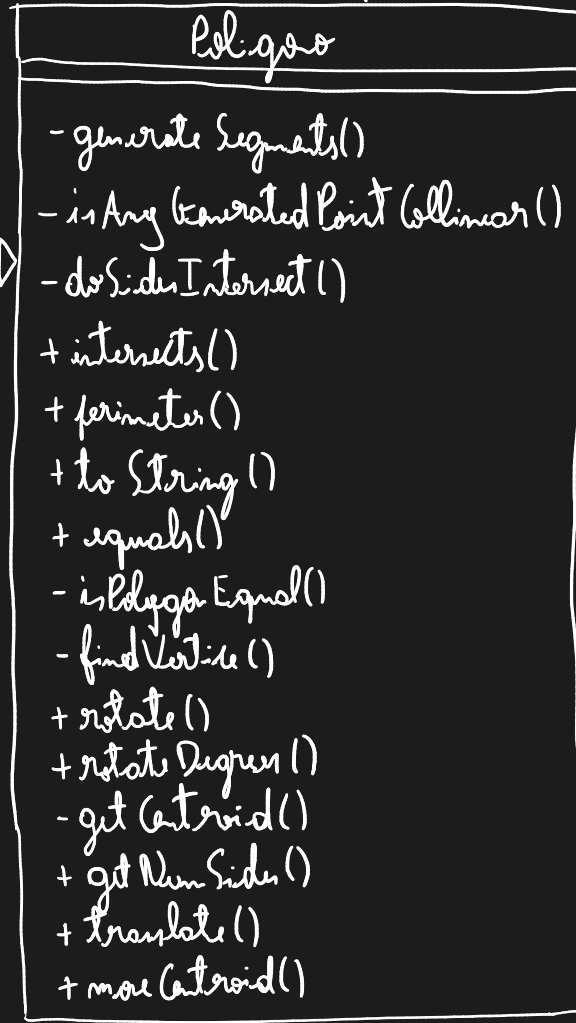 Poligono
- generateSegments()
- isAnyGeneratedPointCollinear()
- doSidesIntersect()
+ intersects()
+ perimeter()
+ toString()
+ equals()
- isPolygonEqual()
- findVertice()
+ rotate()
+ rotateDegrees()
- getCentroid()
+ getNumSides()
+ translate()
+ moveCentroid()